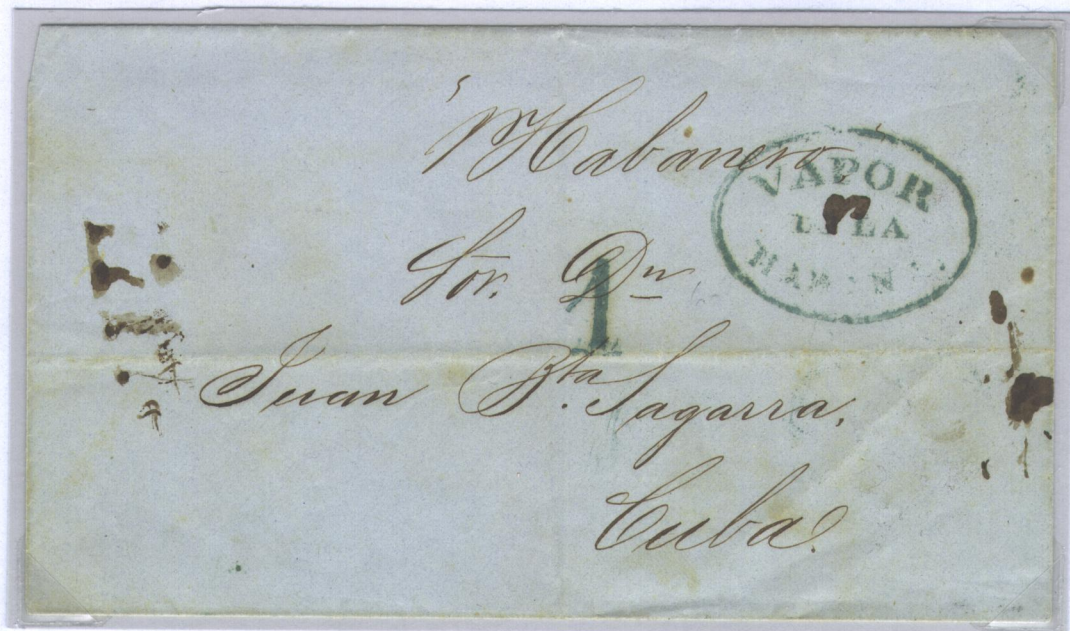 p Habanero
VAPOR
DE LA
HABANA.
Sor. Dn
1
Juan Bta Sagarra,
Cuba.